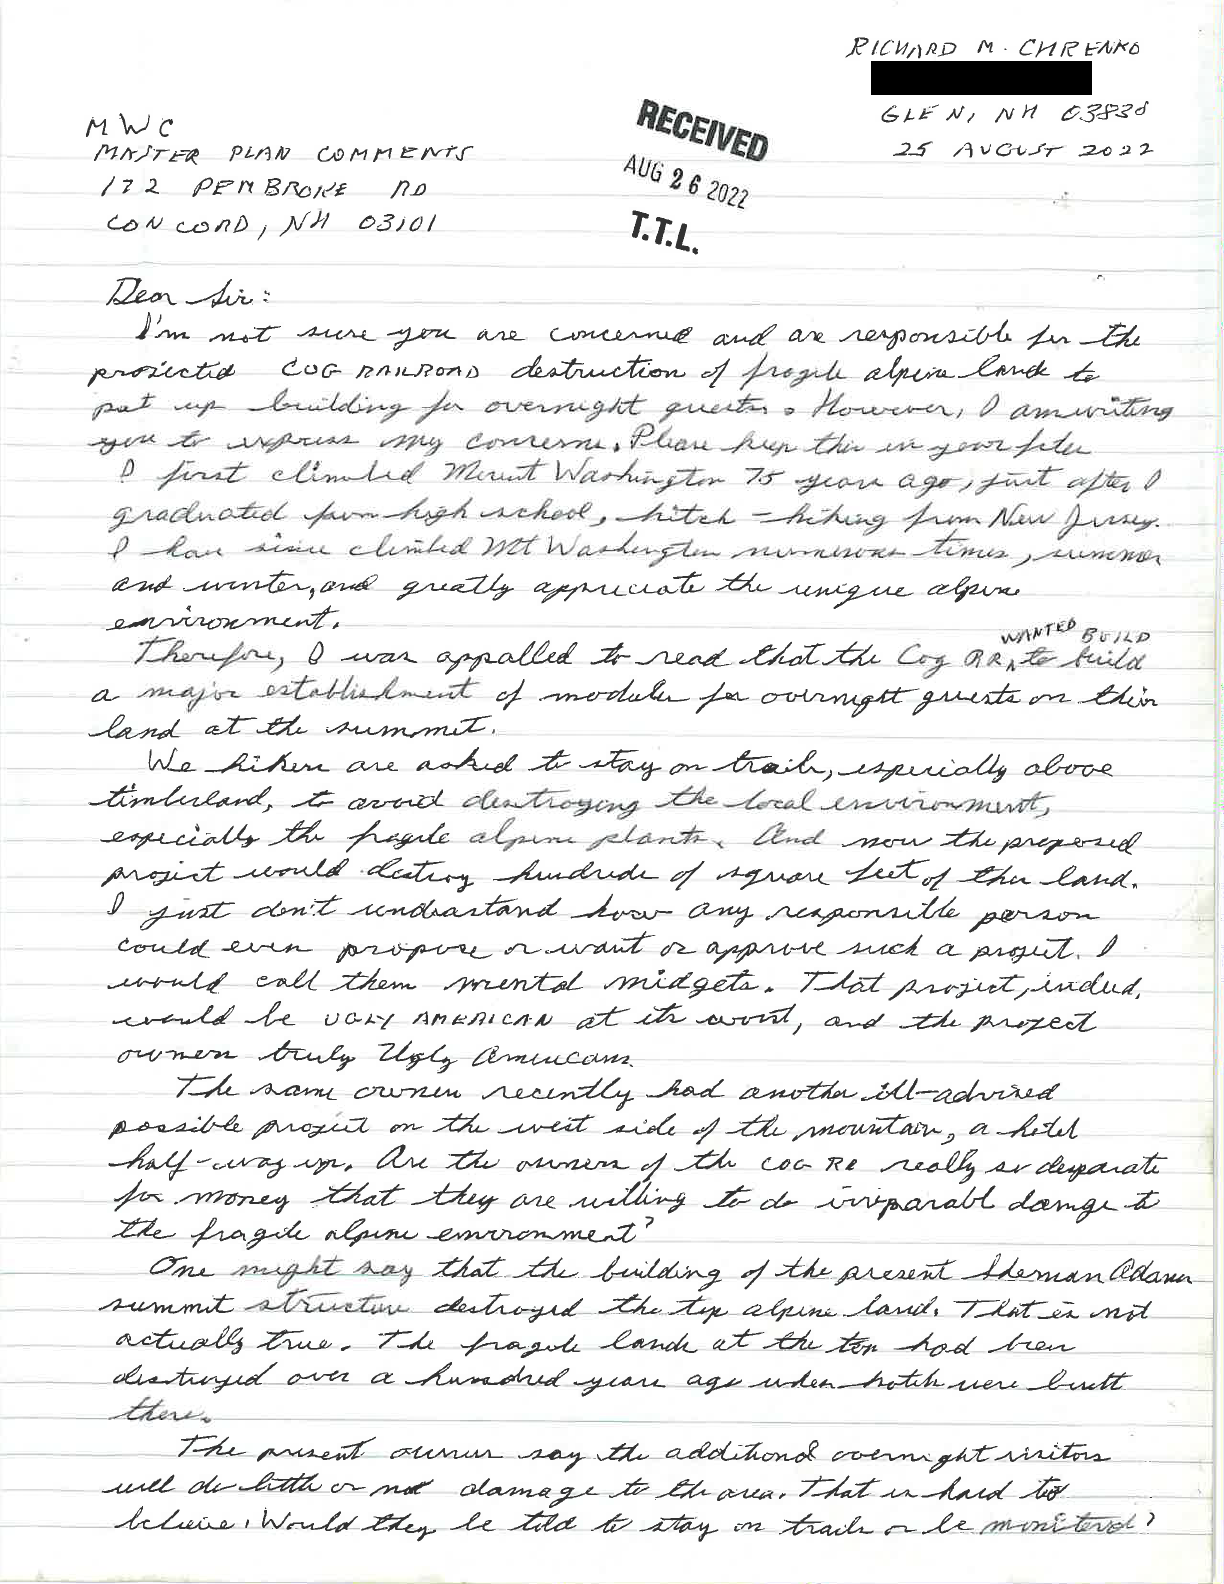 RICHARD M. CHRENKO
GLEN, NH 03838
25 AUGUST 2022
MWC
MASTER PLAN COMMENTS
172 PEMBROKE RD
CONCORD, NH 03101
RECEIVED
AUG 26 2022
T.T.L.
Dear Sir:
I'm not sure you are concerned and are responsible for the
projected COG RAILROAD destruction of fragile alpine land to
put up building for overnight guests. However, I am writing
you to express my concerns. Please keep this in your files
I first climbed Mount Washington 75 years ago, just after I
graduated from high school, hitch-hiking from New Jersey.
I have since climbed Mt Washington numerous times, summer
and winter, and greatly appreciate the unique alpine
environment.
WANTED BUILD
Therefore, I was appalled to read that the Cog RR ^ to build
a major establishment of modules for overnight guests on their
land at the summit.
We hikers are asked to stay on trails, especially above
timberland, to avoid destroying the local environment,
especially the fragile alpine plants. And now the proposed
project would destroy hundreds of square feet of this land.
I just don't understand how any responsible person
could even propose or want or approve such a project. I
would call them mental midgets. That project, indeed,
would be UGLY AMERICAN at its worst, and the project
owners truly Ugly Americans.
The same owners recently had another ill-advised
possible project on the west side of the mountain, a hotel
half-way up. Are the owners of the COG RR really so desparate
for money that they are willing to do irreparable damage to
the fragile alpine environment?
One might say that the building of the present Sherman Adams
summit structure destroyed the top alpine land. That is not
actually true. The fragile lands at the top had been
destroyed over a hundred years ago when hotels were built
there.
The present owners say the additional overnight visitors
will do little or no damage to the area. That is hard to
believe. Would they be told to stay on trails or be monitored?